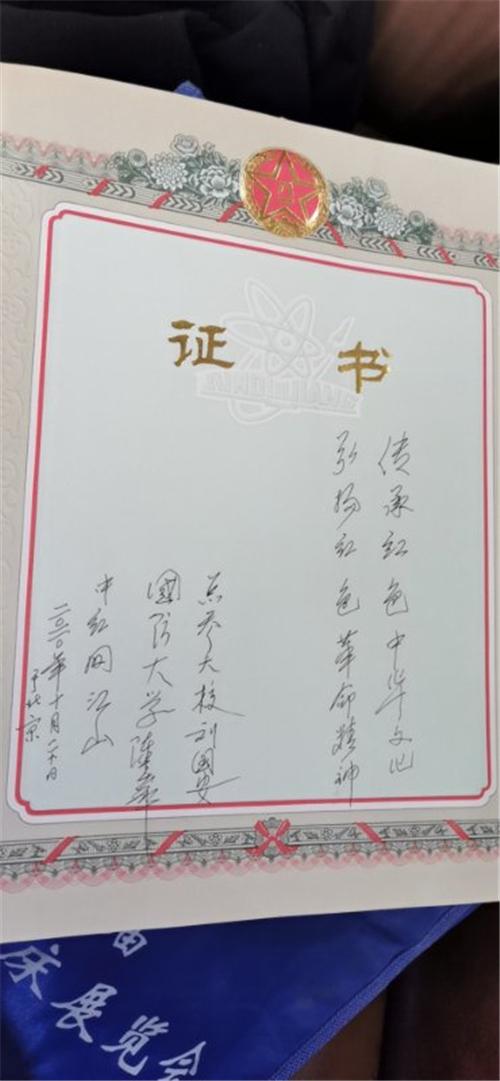 证书
传承红色中华文化
弘扬红色革命精神
总参大校刘国安
國防大学陈华
中红网江山
二〇二〇年十月二十日
于北京
床展览会